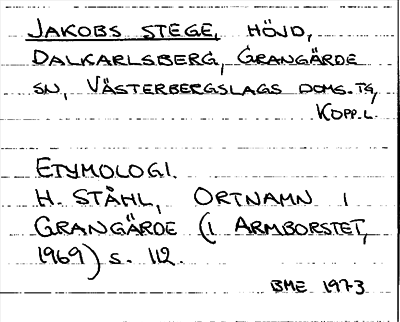 JAKOBS STEGE, HÖJD,
DALKARLSBERG, GRANGÄRDE
SN, VÄSTERBERGSLAGS DOMS.TG,
KOPP.L.
ETYMOLOGI.
H. STÅHL, ORTNAMN I
GRANGÄRDE (I ARMBORSTET,
1969) S. 112.
BME 1973